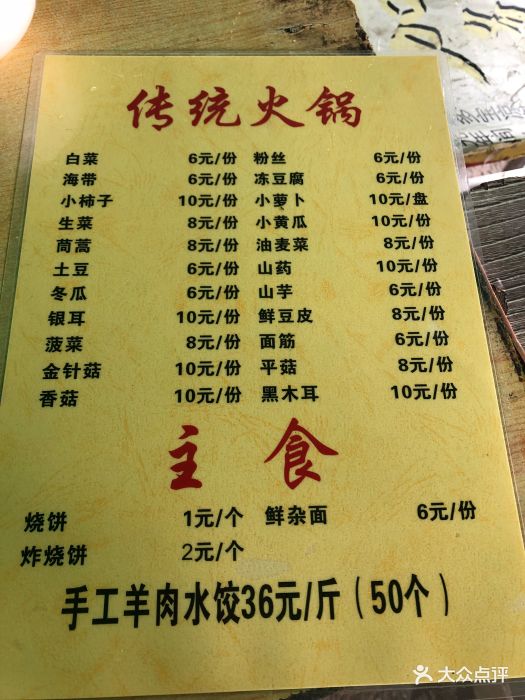 传统火锅
白菜 6元/份 粉丝 6元/份
海带 6元/份 冻豆腐 6元/份
小柿子 10元/份 小萝卜 10元/盘
生菜 8元/份 小黄瓜 10元/份
茼蒿 8元/份 油麦菜 8元/份
土豆 6元/份 山药 10元/份
冬瓜 6元/份 山芋 6元/份
银耳 10元/份 鲜豆皮 8元/份
菠菜 8元/份 面筋 6元/份
金针菇 10元/份 平菇 8元/份
香菇 10元/份 黑木耳 10元/份
主食
烧饼 1元/个 鲜杂面 6元/份
炸烧饼 2元/个
手工羊肉水饺36元/斤（50个）
大众点评